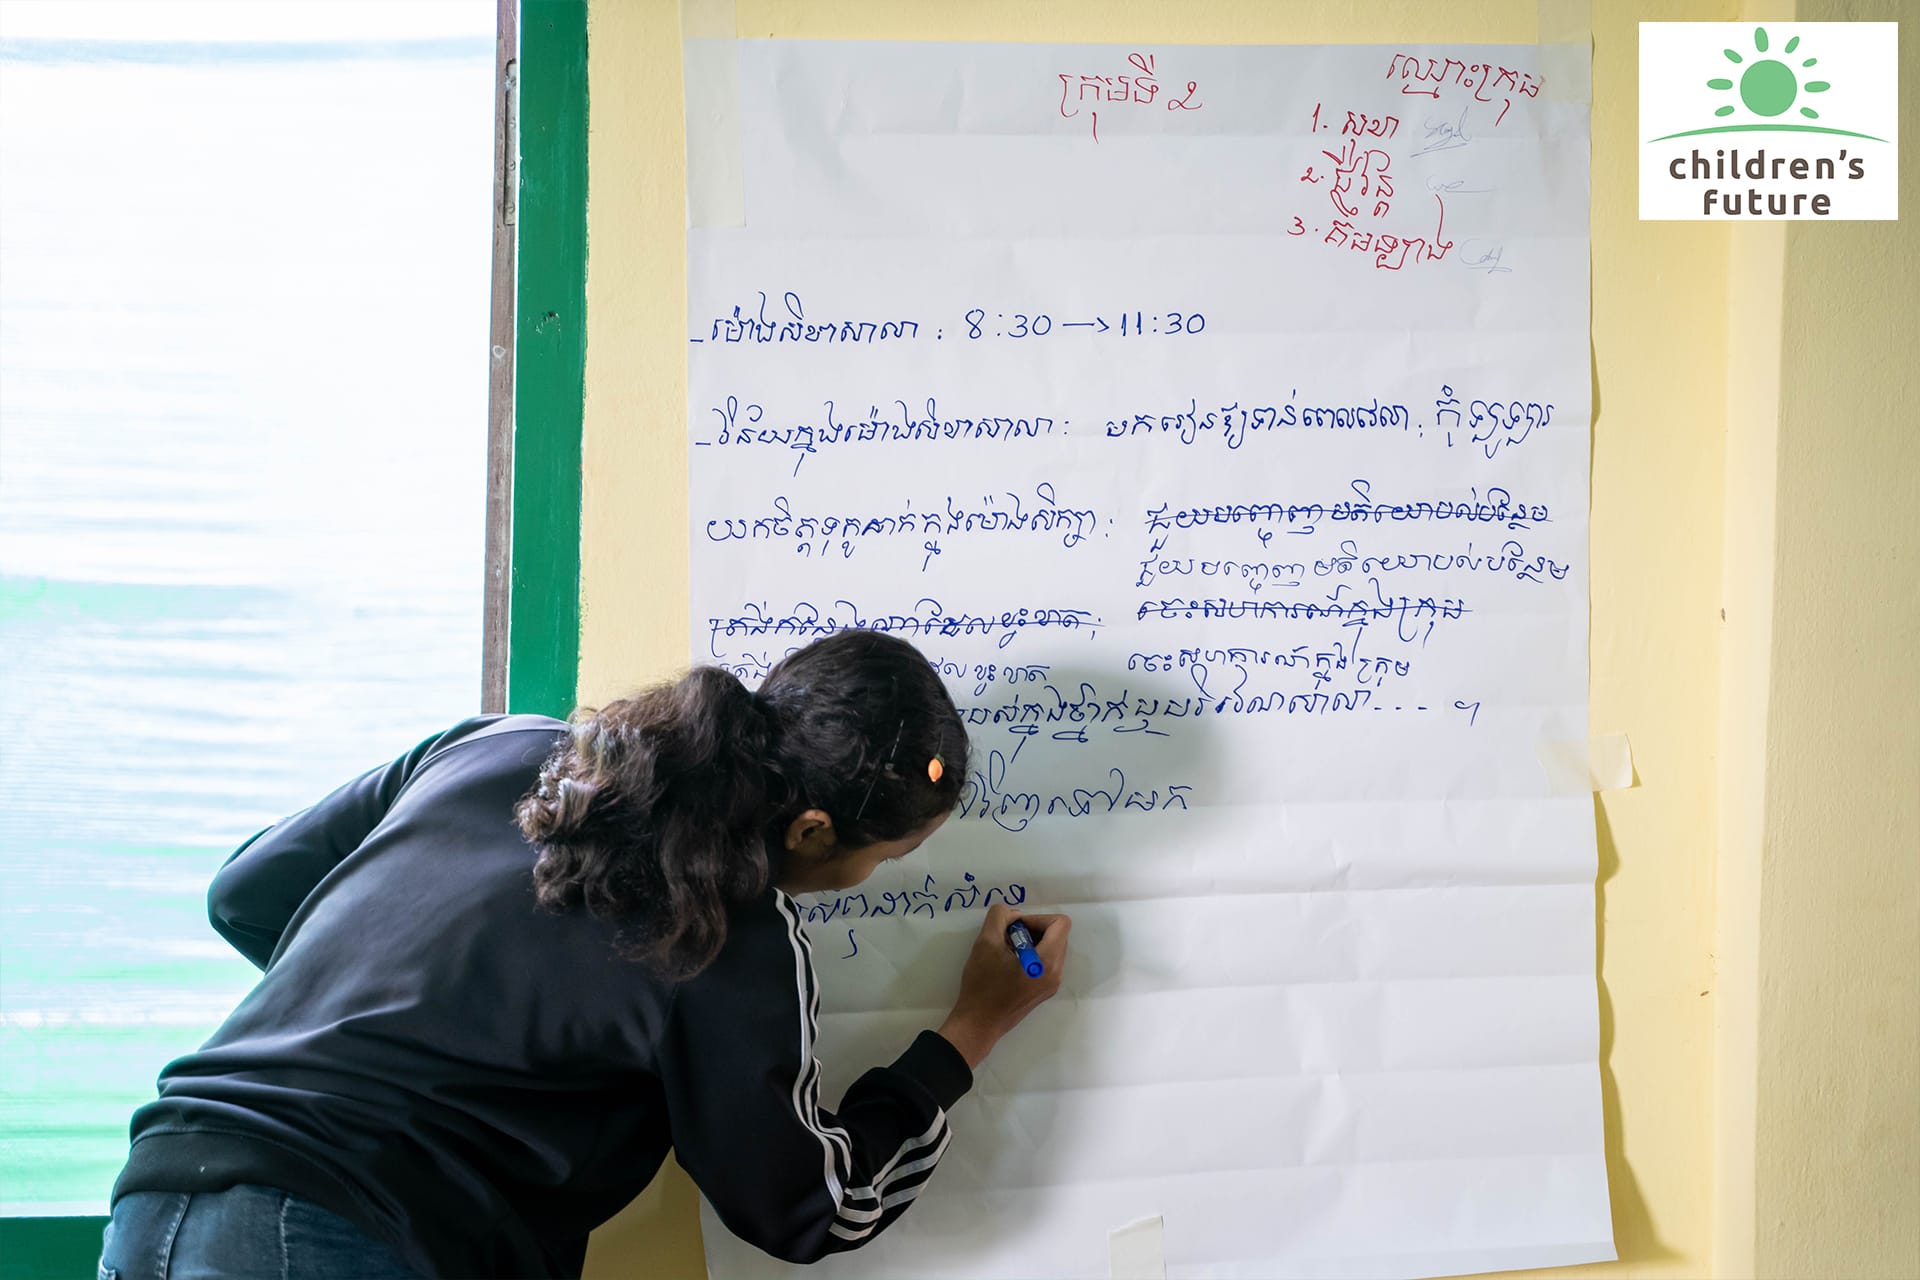 children's
future
ក្រុមទី ២
ឈ្មោះក្រុម
1. សុខា
២. ជីវ័ន្ត
3. គឹមឡាង
- ម៉ោងសិខាសាលា : 8:30 → 11:30
- វិន័យក្នុងម៉ោងសិខាសាលា : មករៀនឱ្យទាន់ពេលវេលា, កុំឡូឡារ
យកចិត្តទុកដាក់ក្នុងម៉ោងសិក្សា, ជួយបញ្ចេញមតិយោបល់បន្ថែម
ជួយបញ្ចេញមតិយោបល់បន្ថែម
ត្រង់កន្លែងណាដែលខ្វះខាត, ចេះសហការណ៍ក្នុងក្រុម
ត្រង់ ដែលខ្វះខាត ចេះសហការណ៍ក្នុងក្រុម
ក្នុងថ្នាក់ឬបរិវេណសាលា... ។
វិញទៅមក
ដាក់សំ